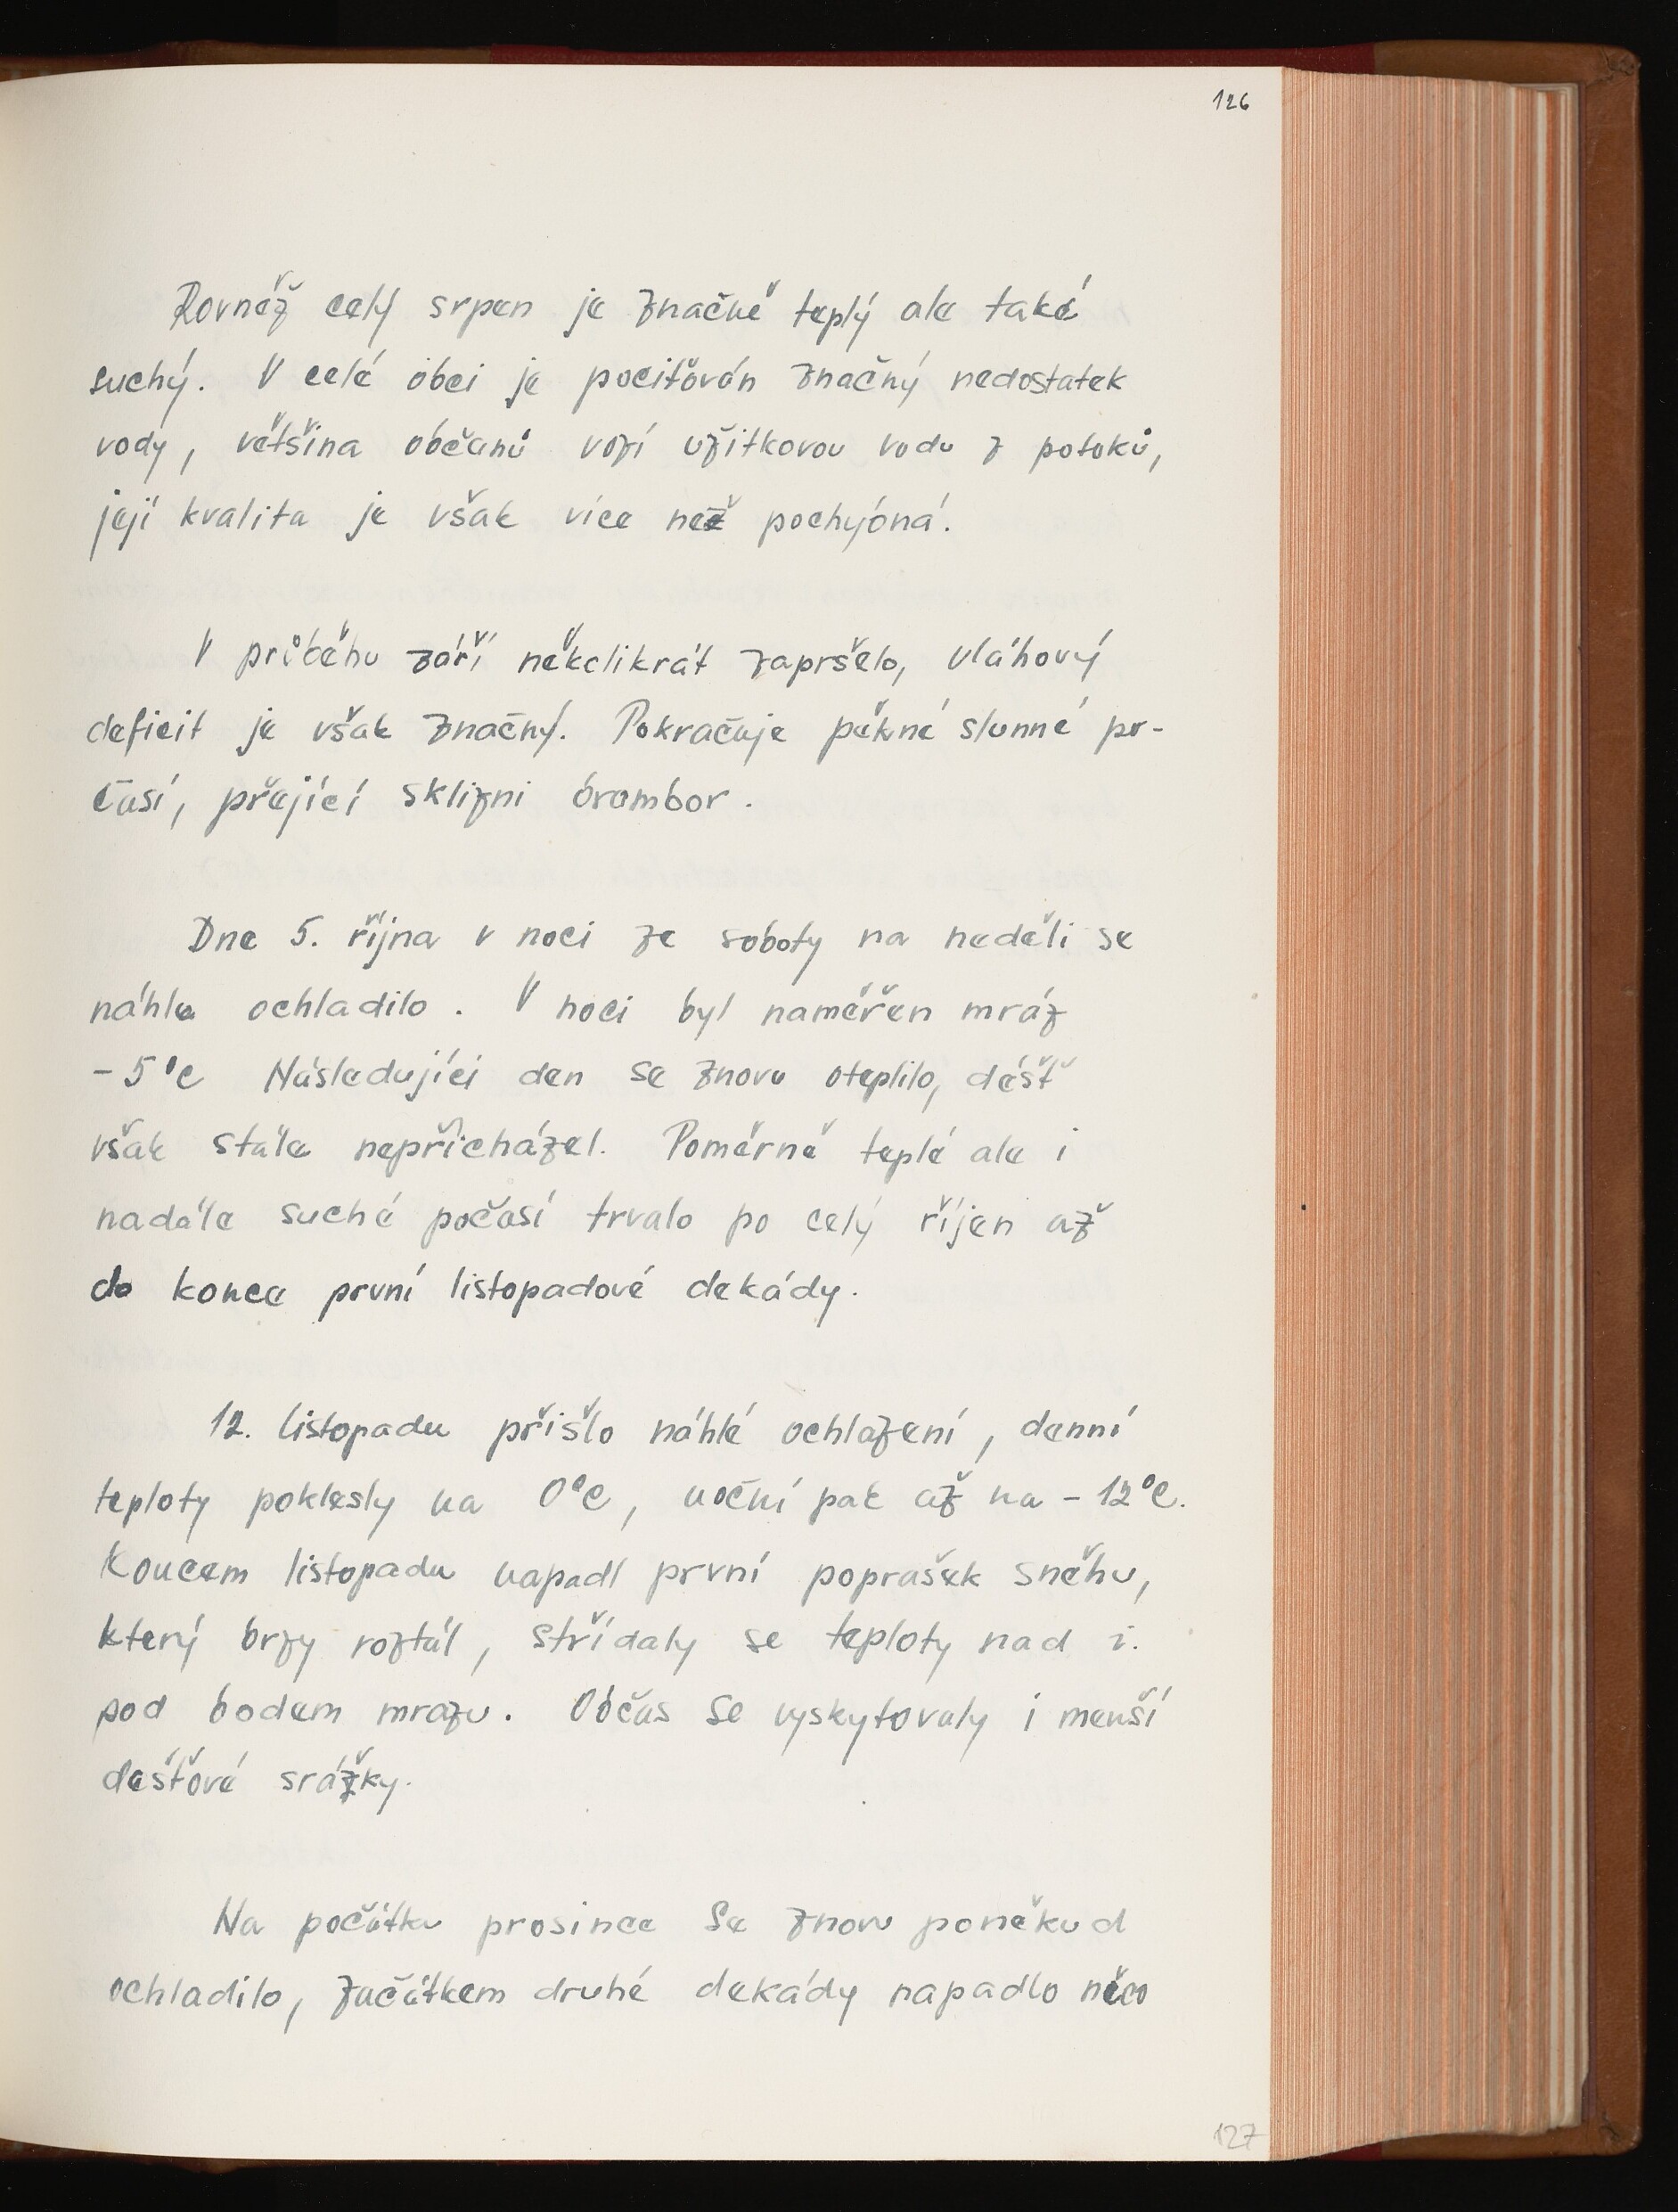 126
Rovněž celý srpen je značně teplý ale také
suchý. V celé obci je pociťován značný nedostatek
vody, většina občanů vozí užitkovou vodu z potoků,
její kvalita je však více než pochybná.
V průběhu září několikrát zapršelo, vláhový
deficit je však značný. Pokračuje pěkné slunné po-
časí, přející sklizni brambor.
Dne 5. října v noci ze soboty na neděli se
náhle ochladilo. V noci byl naměřen mráz
-5°C Následující den se znovu oteplilo, déšť
však stále nepřicházel. Poměrně teplé ale i
nadále suché počasí trvalo po celý říjen až
do konce první listopadové dekády.
12. listopadu přišlo náhlé ochlazení, denní
teploty poklesly na 0°C, noční pak až na -12°C.
Koncem listopadu napadl první poprašek sněhu,
který brzy roztál, střídaly se teploty nad i.
pod bodem mrazu. Občas se vyskytovaly i menší
dešťové srážky.
Na počátku prosince se znovu poněkud
ochladilo, začátkem druhé dekády napadlo něco
127